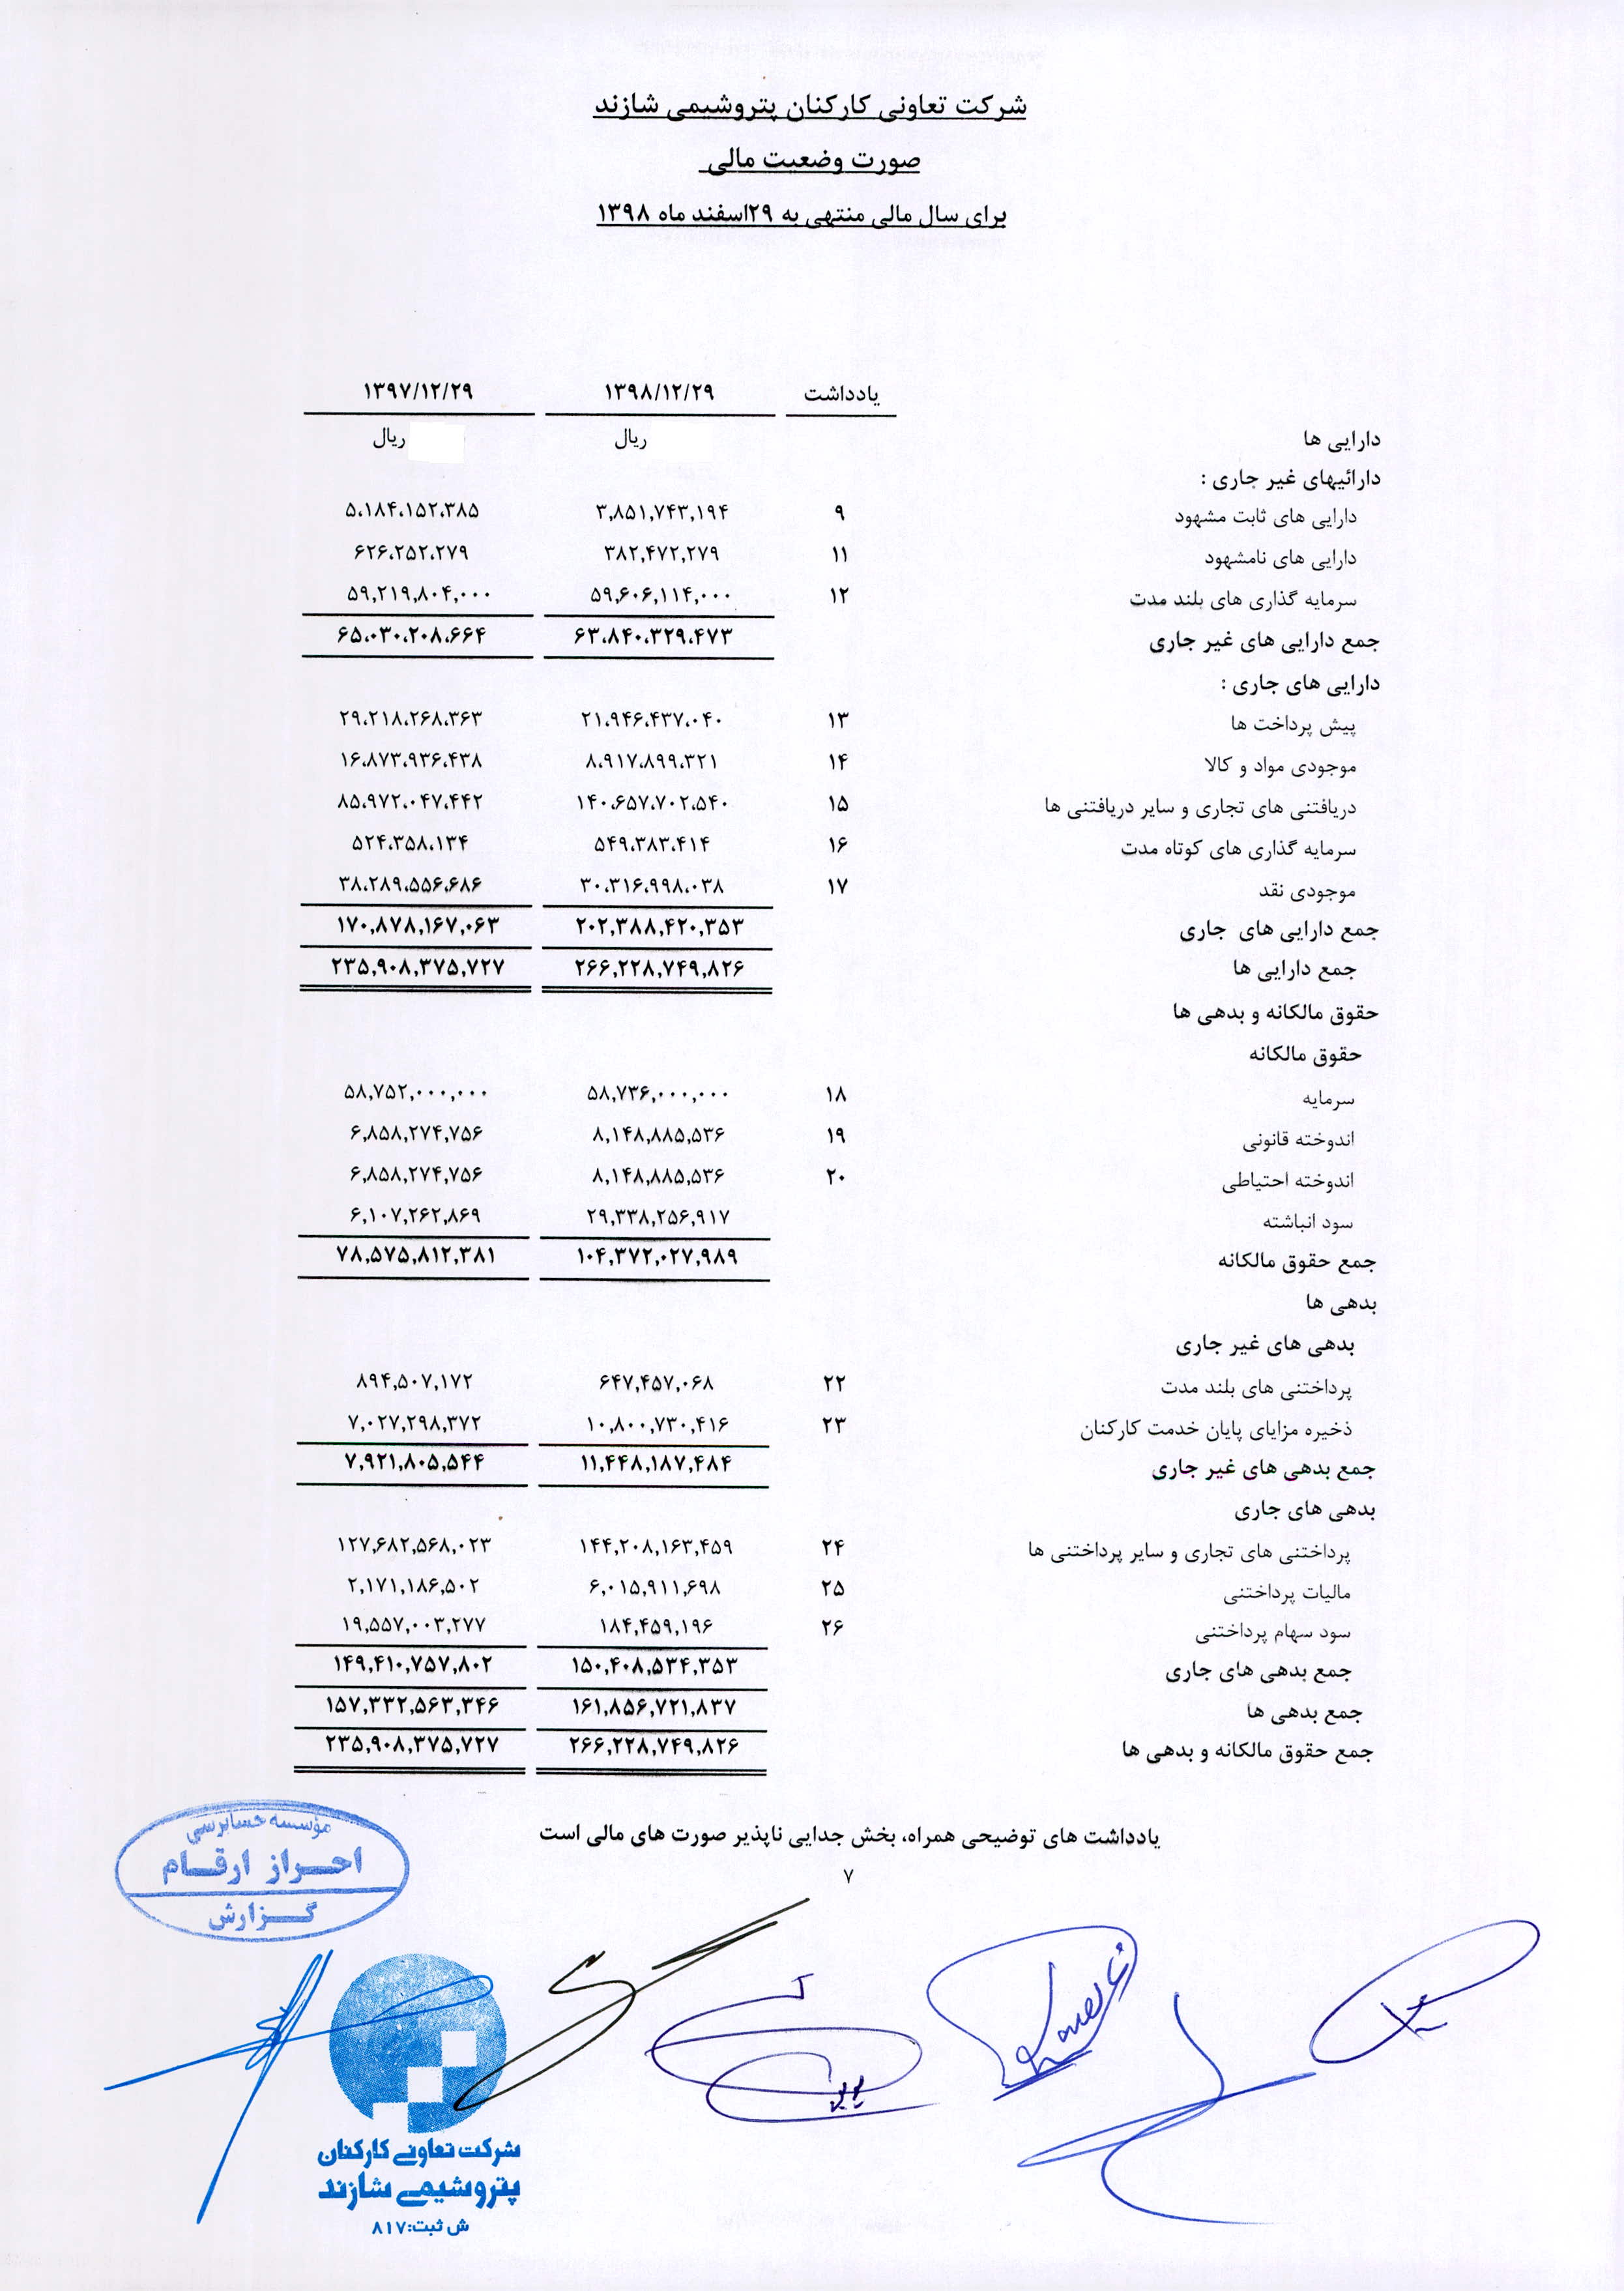 شرکت تعاونی کارکنان پتروشیمی شازند
صورت وضعیت مالی
برای سال مالی منتهی به ۲۹اسفند ماه ۱۳۹۸
یادداشت ۱۳۹۸/۱۲/۲۹ ۱۳۹۷/۱۲/۲۹
دارایی ها ریال ریال
دارائیهای غیر جاری :
دارایی های ثابت مشهود ۹ ۳,۸۵۱,۷۴۳,۱۹۴ ۵،۱۸۴،۱۵۲،۳۸۵
دارایی های نامشهود ۱۱ ۳۸۲,۴۷۲,۲۷۹ ۶۲۶،۲۵۲،۲۷۹
سرمایه گذاری های بلند مدت ۱۲ ۵۹,۶۰۶,۱۱۴,۰۰۰ ۵۹,۲۱۹,۸۰۴,۰۰۰
جمع دارایی های غیر جاری ۶۳،۸۴۰،۳۲۹،۴۷۳ ۶۵،۰۳۰،۲۰۸،۶۶۴
دارایی های جاری :
پیش پرداخت ها ۱۳ ۲۱،۹۴۶،۴۳۷،۰۴۰ ۲۹،۲۱۸،۲۶۸،۳۶۳
موجودی مواد و کالا ۱۴ ۸،۹۱۷،۸۹۹،۳۲۱ ۱۶،۸۷۳،۹۳۶،۴۳۸
دریافتنی های تجاری و سایر دریافتنی ها ۱۵ ۱۴۰،۶۵۷،۷۰۲،۵۴۰ ۸۵،۹۷۲،۰۴۷،۴۴۲
سرمایه گذاری های کوتاه مدت ۱۶ ۵۴۹،۳۸۳،۴۱۴ ۵۲۴،۳۵۸،۱۳۴
موجودی نقد ۱۷ ۳۰،۳۱۶،۹۹۸،۰۳۸ ۳۸،۲۸۹،۵۵۶،۶۸۶
جمع دارایی های جاری ۲۰۲,۳۸۸,۴۲۰,۳۵۳ ۱۷۰,۸۷۸,۱۶۷,۰۶۳
جمع دارایی ها ۲۶۶,۲۲۸,۷۴۹,۸۲۶ ۲۳۵,۹۰۸,۳۷۵,۷۲۷
حقوق مالکانه و بدهی ها
حقوق مالکانه
سرمایه ۱۸ ۵۸,۷۳۶,۰۰۰,۰۰۰ ۵۸,۷۵۲,۰۰۰,۰۰۰
اندوخته قانونی ۱۹ ۸,۱۴۸,۸۸۵,۵۳۶ ۶,۸۵۸,۲۷۴,۷۵۶
اندوخته احتیاطی ۲۰ ۸,۱۴۸,۸۸۵,۵۳۶ ۶,۸۵۸,۲۷۴,۷۵۶
سود انباشته ۲۹,۳۳۸,۲۵۶,۹۱۷ ۶,۱۰۷,۲۶۲,۸۶۹
جمع حقوق مالکانه ۱۰۴,۳۷۲,۰۲۷,۹۸۹ ۷۸,۵۷۵,۸۱۲,۳۸۱
بدهی ها
بدهی های غیر جاری
پرداختنی های بلند مدت ۲۲ ۶۴۷,۴۵۷,۰۶۸ ۸۹۴,۵۰۷,۱۷۲
ذخیره مزایای پایان خدمت کارکنان ۲۳ ۱۰,۸۰۰,۷۳۰,۴۱۶ ۷,۰۲۷,۲۹۸,۳۷۲
جمع بدهی های غیر جاری ۱۱,۴۴۸,۱۸۷,۴۸۴ ۷,۹۲۱,۸۰۵,۵۴۴
بدهی های جاری
پرداختنی های تجاری و سایر پرداختنی ها ۲۴ ۱۴۴,۲۰۸,۱۶۳,۴۵۹ ۱۲۷,۶۸۲,۵۶۸,۰۲۳
مالیات پرداختنی ۲۵ ۶,۰۱۵,۹۱۱,۶۹۸ ۲,۱۷۱,۱۸۶,۵۰۲
سود سهام پرداختنی ۲۶ ۱۸۴,۴۵۹,۱۹۶ ۱۹,۵۵۷,۰۰۳,۲۷۷
جمع بدهی های جاری ۱۵۰,۴۰۸,۵۳۴,۳۵۳ ۱۴۹,۴۱۰,۷۵۷,۸۰۲
جمع بدهی ها ۱۶۱,۸۵۶,۷۲۱,۸۳۷ ۱۵۷,۳۳۲,۵۶۳,۳۴۶
جمع حقوق مالکانه و بدهی ها ۲۶۶,۲۲۸,۷۴۹,۸۲۶ ۲۳۵,۹۰۸,۳۷۵,۷۲۷
یادداشت های توضیحی همراه، بخش جدایی ناپذیر صورت های مالی است
۷
مؤسسه حسابرسی
احراز ارقام
گزارش
شرکت تعاونی کارکنان
پتروشیمی شازند
ش ثبت:۸۱۷